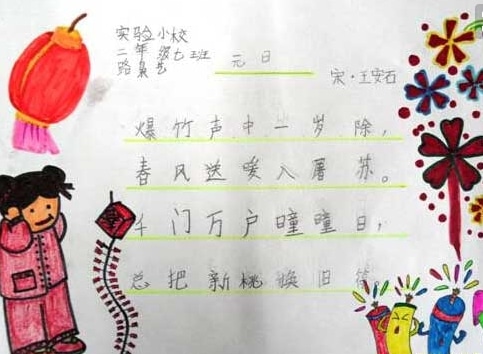 实验小校
二年级七班
路枭艺
元日
宋·王安石
爆竹声中一岁除，
春风送暖入屠苏。
千门万户曈曈日，
总把新桃换旧符